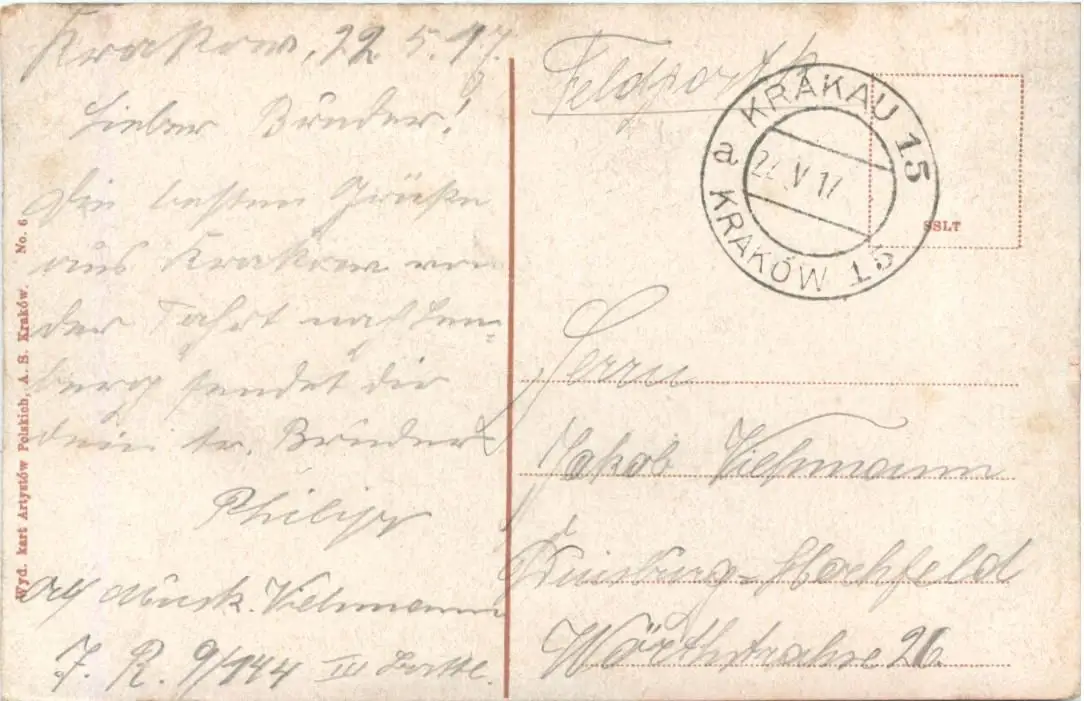 Krakow, 22.5.17.
Lieber Bruder!
Die besten Grüße
aus Krakow von
der Fahrt nach Lem„
berg sendet dir
dein tr. Bruder
Philipp
Musk. Viehmann
J. R. 9/144 III
Wyd. kart Artystów Polskich, A. S. Kraków. No. 6
Feldpost
KRAKAU 15
a 22 V 17
KRAKÓW 15
SSLT
Herrn
Jakob Viehmann
Duisburg-Hochfeld
Wörthstrahse 26.